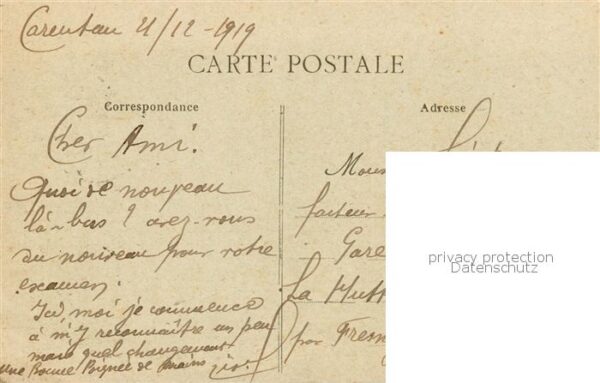 Carentan 21/12-1919
CARTE POSTALE
Correspondance
Adresse
Cher Ami.
Quoi de nouveau
là-bas ? avez-vous
du nouveau pour votre
examen.
Ici, moi je commence
à m'y reconnaître un peu
mais quel changement
une Bonne Poignée de mains
Mous
facteur
Gare
La Hutt
par Fresn
privacy protection
Datenschutz